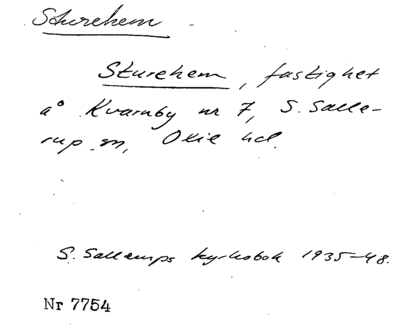 Sturehem
Sturehem, fastighet
å Kvarnby nr 7, S. Salle-
rup sn, Oxie hd.
S. Sallerups kyrkobok 1935-48.
Nr 7754